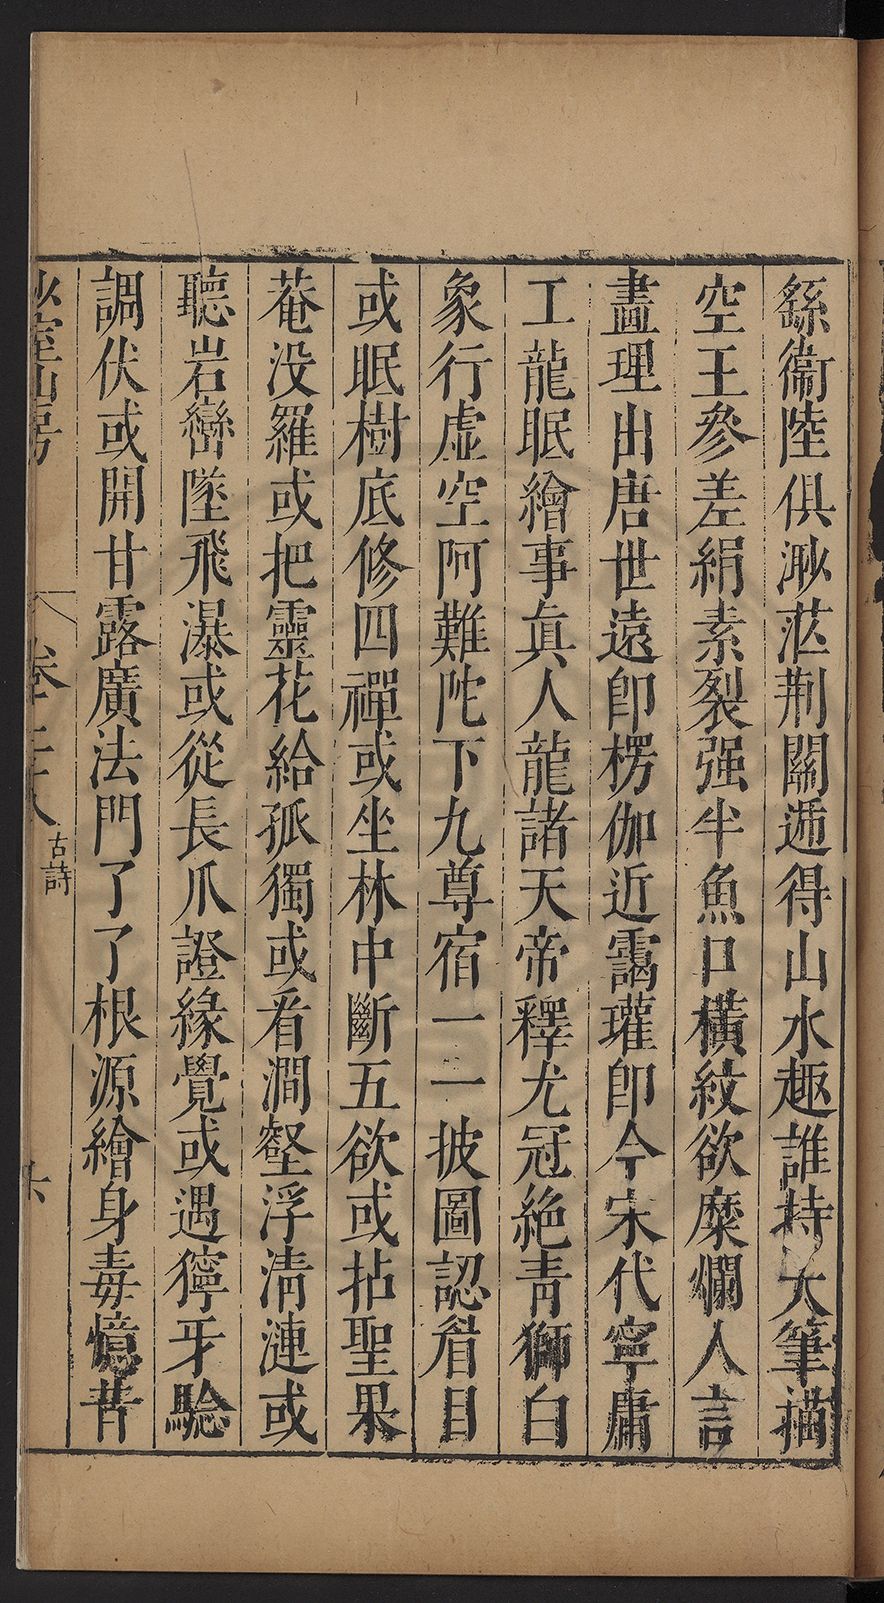 繇衞陸俱渺茫荆關遞得山水趣誰持大筆描
空王參差絹素裂强半魚口橫紋欲糜爛人言
畫理出唐世遠卽楞伽近靄瓘卽今宋代寧庸
工龍眠繪事眞人龍諸天帝釋尤冠絶靑獅白
象行虛空阿難陀下九尊宿一一披圖認眉目
或眠樹底修四禪或坐林中斷五欲或拈聖果
菴没羅或把靈花給孤獨或看澗壑浮淸漣或
聽岩巒墜飛瀑或從長爪證緣覺或遇獰牙騐
調伏或開甘露廣法門了了根源繪身毒憶昔
少室山房
卷二十八
古詩
六